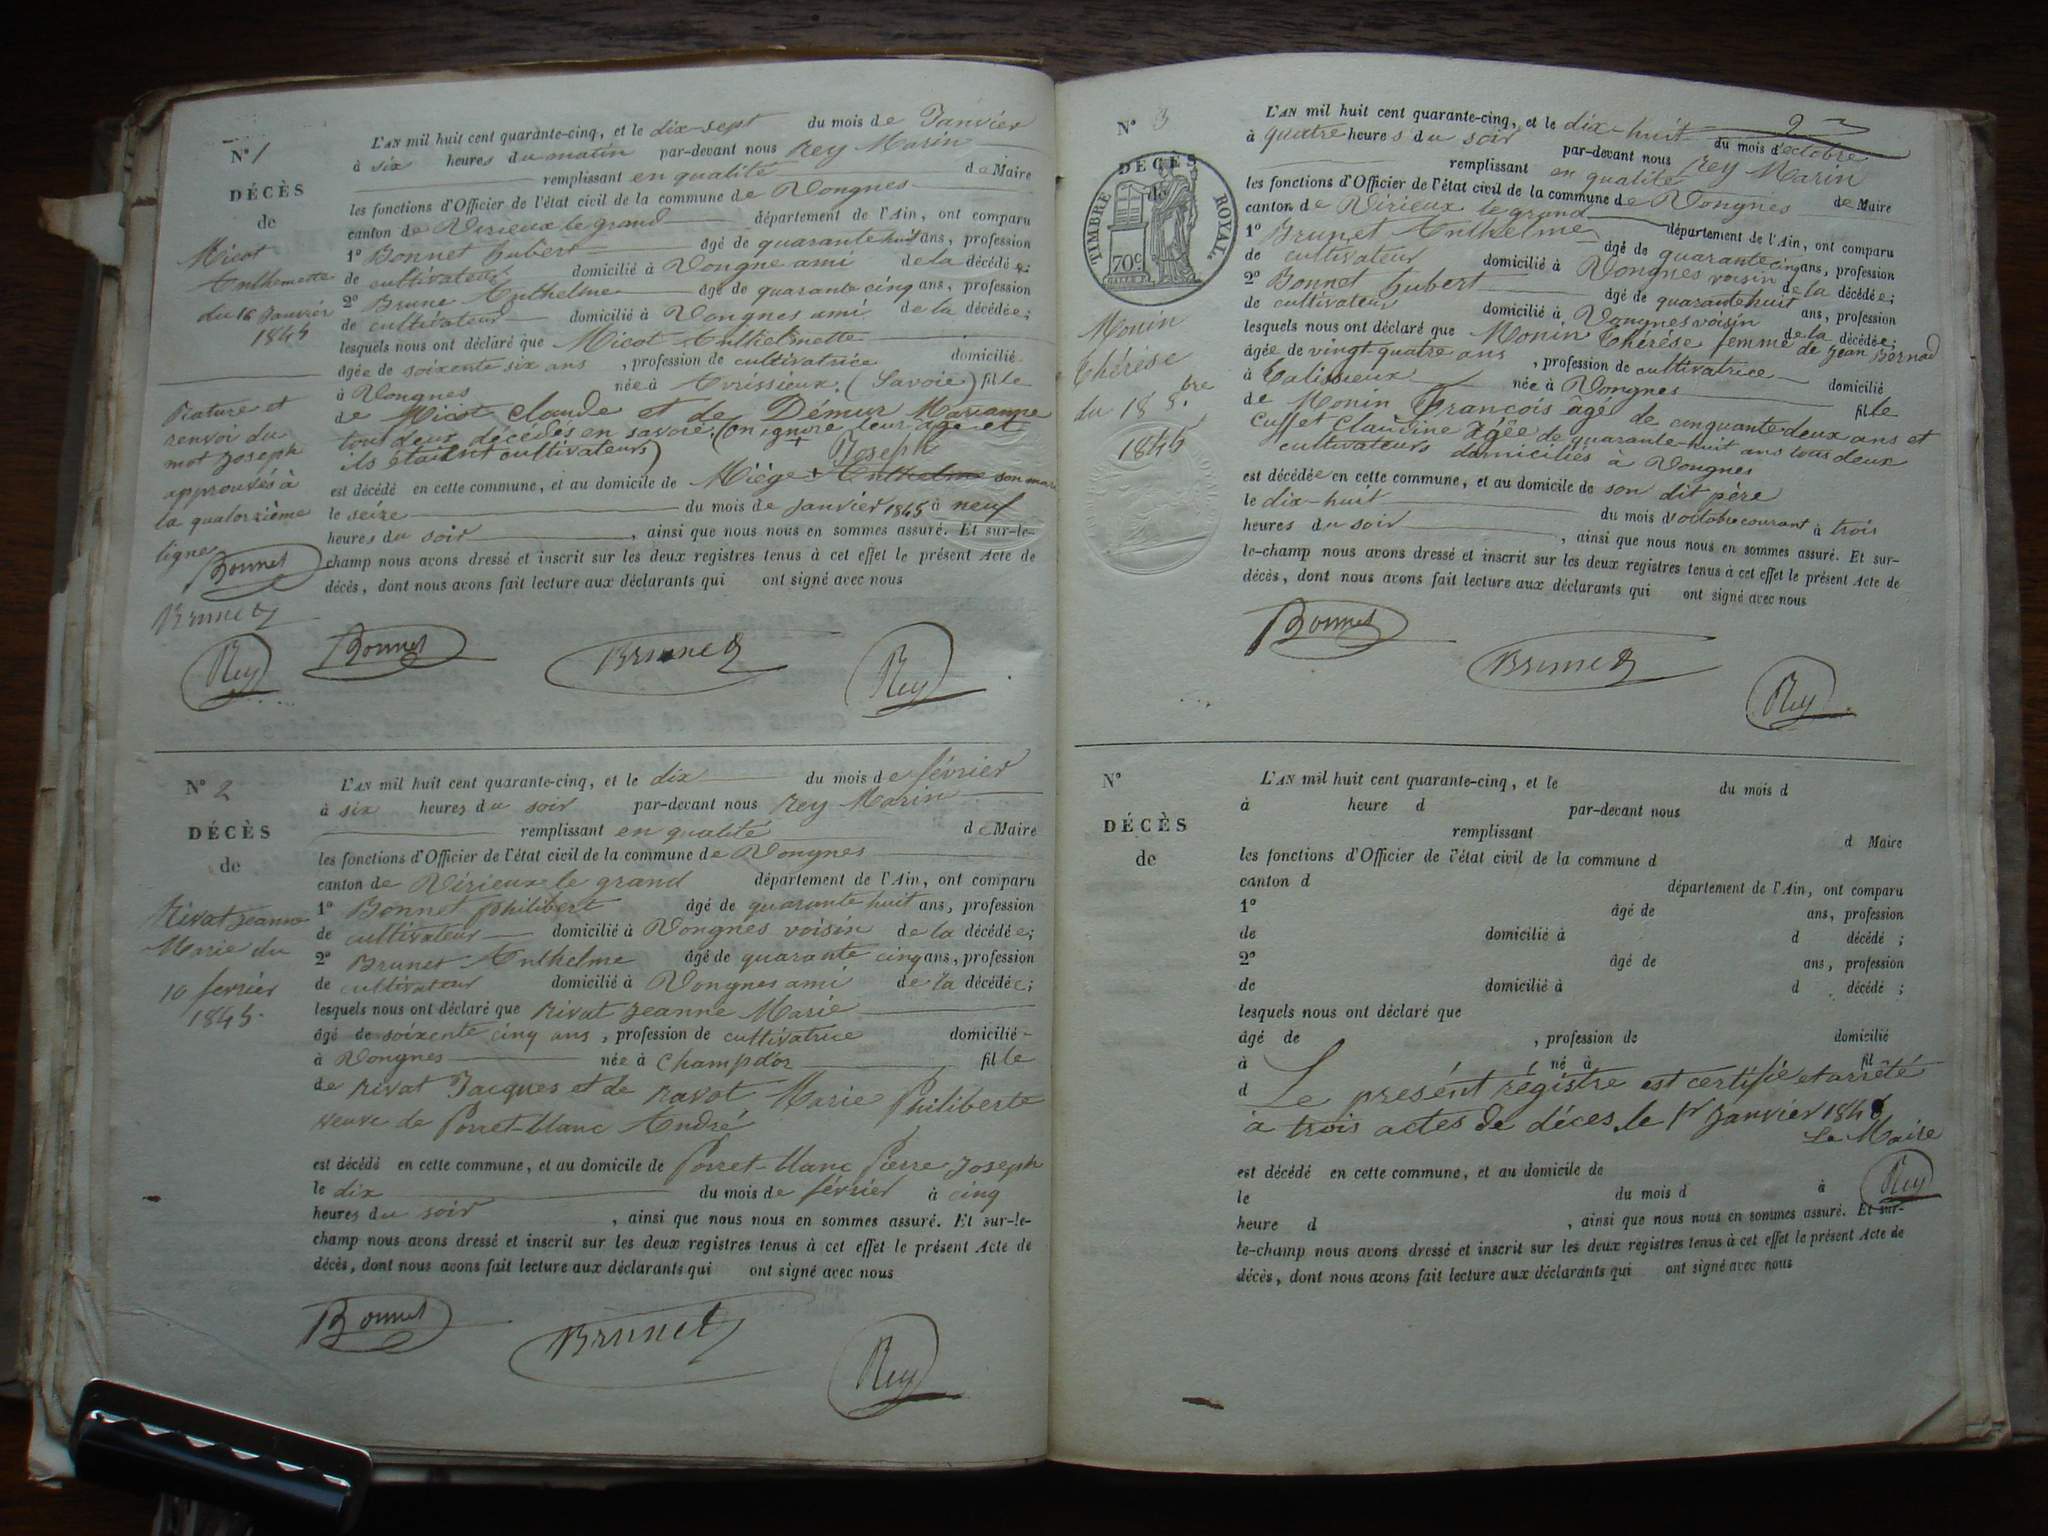 N° 1
DÉCÈS
de
Micot
Anthemette
du 16 Janvier
1845
Rature et
renvoi du
mot Joseph
approuvés à
la quatorzième
ligne
Bonnet
Brunet
Rey
L'AN mil huit cent quarante-cinq, et le dix-sept du mois de Janvier
à six heures du matin par-devant nous Rey Marin
remplissant en qualité de Maire
les fonctions d'Officier de l'état civil de la commune de Vongnes
canton de Virieux le grand département de l'Ain, ont comparu
1° Bonnet hubert âgé de quarante huit ans, profession
de cultivateur domicilié à Vongne ami de la décédée
2° Brune Anthelme âgé de quarante cinq ans, profession
de cultivateur domicilié à Vongnes ami de la décédée;
lesquels nous ont déclaré que Micot Anthelmette
âgée de soixente six ans, profession de cultivatrice domicilié
à Vongnes née à Avrissieux. (Savoie) fille
de Micot Claude et de Démur Marianne
tous deux décédés en savoie. (on ignore leur age et
ils étaient cultivateurs)
Joseph
est décédé en cette commune, et au domicile de Miège + Anthelme son mari
le seize du mois de janvier 1845 à neuf
heures du soir, ainsi que nous nous en sommes assuré. Et sur-le-
champ nous avons dressé et inscrit sur les deux registres tenus à cet effet le présent Acte de
décès, dont nous avons fait lecture aux déclarants qui ont signé avec nous
Bonnet Brunet Rey
N° 2
DÉCÈS
de
Rivat Jeanne
Marie du
10 fevrier
1845.
L'AN mil huit cent quarante-cinq, et le dix du mois de février
à six heures du soir par-devant nous Rey Marin
remplissant en qualité de Maire
les fonctions d'Officier de l'état civil de la commune de Vongnes
canton de Virieux le grand département de l'Ain, ont comparu
1° Bonnet philibert âgé de quarante huit ans, profession
de cultivateur domicilié à Vongnes voisin de la décédée;
2° Brunet Anthelme âgé de quarante cinq ans, profession
de cultivateur domicilié à Vongnes ami de la décédée;
lesquels nous ont déclaré que Rivat Jeanne Marie
âgé de soixente cinq ans, profession de cultivatrice domicilié
à Vongnes née à Champdor fille
de Rivat Jacques et de Ravot Marie Philiberte
veuve de Porret-blanc André
est décédé en cette commune, et au domicile de Porret-blanc Pierre Joseph
le dix du mois de février à cinq
heures du soir, ainsi que nous nous en sommes assuré. Et sur-le-
champ nous avons dressé et inscrit sur les deux registres tenus à cet effet le présent Acte de
décès, dont nous avons fait lecture aux déclarants qui ont signé avec nous
Bonnet Brunet Rey
2
N° 3
DÉCÈS
de
TIMBRE ROYAL
70c
Monin
thérèse
du 18 8.bre
1845
L'AN mil huit cent quarante-cinq, et le dix-huit du mois d'octobre
à quatre heures du soir par-devant nous Rey Marin
remplissant en qualité de Maire
les fonctions d'Officier de l'état civil de la commune de Vongnes
canton de Virieux le grand département de l'Ain, ont comparu
1° Brunet Anthelme âgé de quarante cinq ans, profession
de cultivateur domicilié à Vongnes voisin de la décédée;
2° Bonnet hubert âgé de quarante huit ans, profession
de cultivateur domicilié à Vongnes voisin de la décédée;
lesquels nous ont déclaré que Monin thérèse femme de Jean Bernad
âgée de vingt-quatre ans, profession de cultivatrice domicilié
à Talissieux née à Vongnes fille
de Monin François âgé de cinquante deux ans et
Cuffet Claudine âgée de quarante-huit ans tous deux
cultivateurs domiciliés à Vongnes
est décédée en cette commune, et au domicile de son dit père
le dix-huit du mois d'octobre courant à trois
heures du soir, ainsi que nous nous en sommes assuré. Et sur-
le-champ nous avons dressé et inscrit sur les deux registres tenus à cet effet le présent Acte de
décès, dont nous avons fait lecture aux déclarants qui ont signé avec nous
Bonnet Brunet Rey
N°
DÉCÈS
de
L'AN mil huit cent quarante-cinq, et le du mois d
à heure d par-devant nous
remplissant d Maire
les fonctions d'Officier de l'état civil de la commune d
canton d département de l'Ain, ont comparu
1° âgé de ans, profession
de domicilié à d décédé ;
2° âgé de ans, profession
de domicilié à d décédé ;
lesquels nous ont déclaré que
âgé de , profession de domicilié
à , né à fil
d Le présent régistre est certifié et arrêté
à trois actes de déces, le 1r Janvier 1846
Le Maire
est décédé en cette commune, et au domicile de
le du mois d à
Rey
heure d , ainsi que nous nous en sommes assuré. Et sur-
le-champ nous avons dressé et inscrit sur les deux registres tenus à cet effet le présent Acte de
décès, dont nous avons fait lecture aux déclarants qui ont signé avec nous